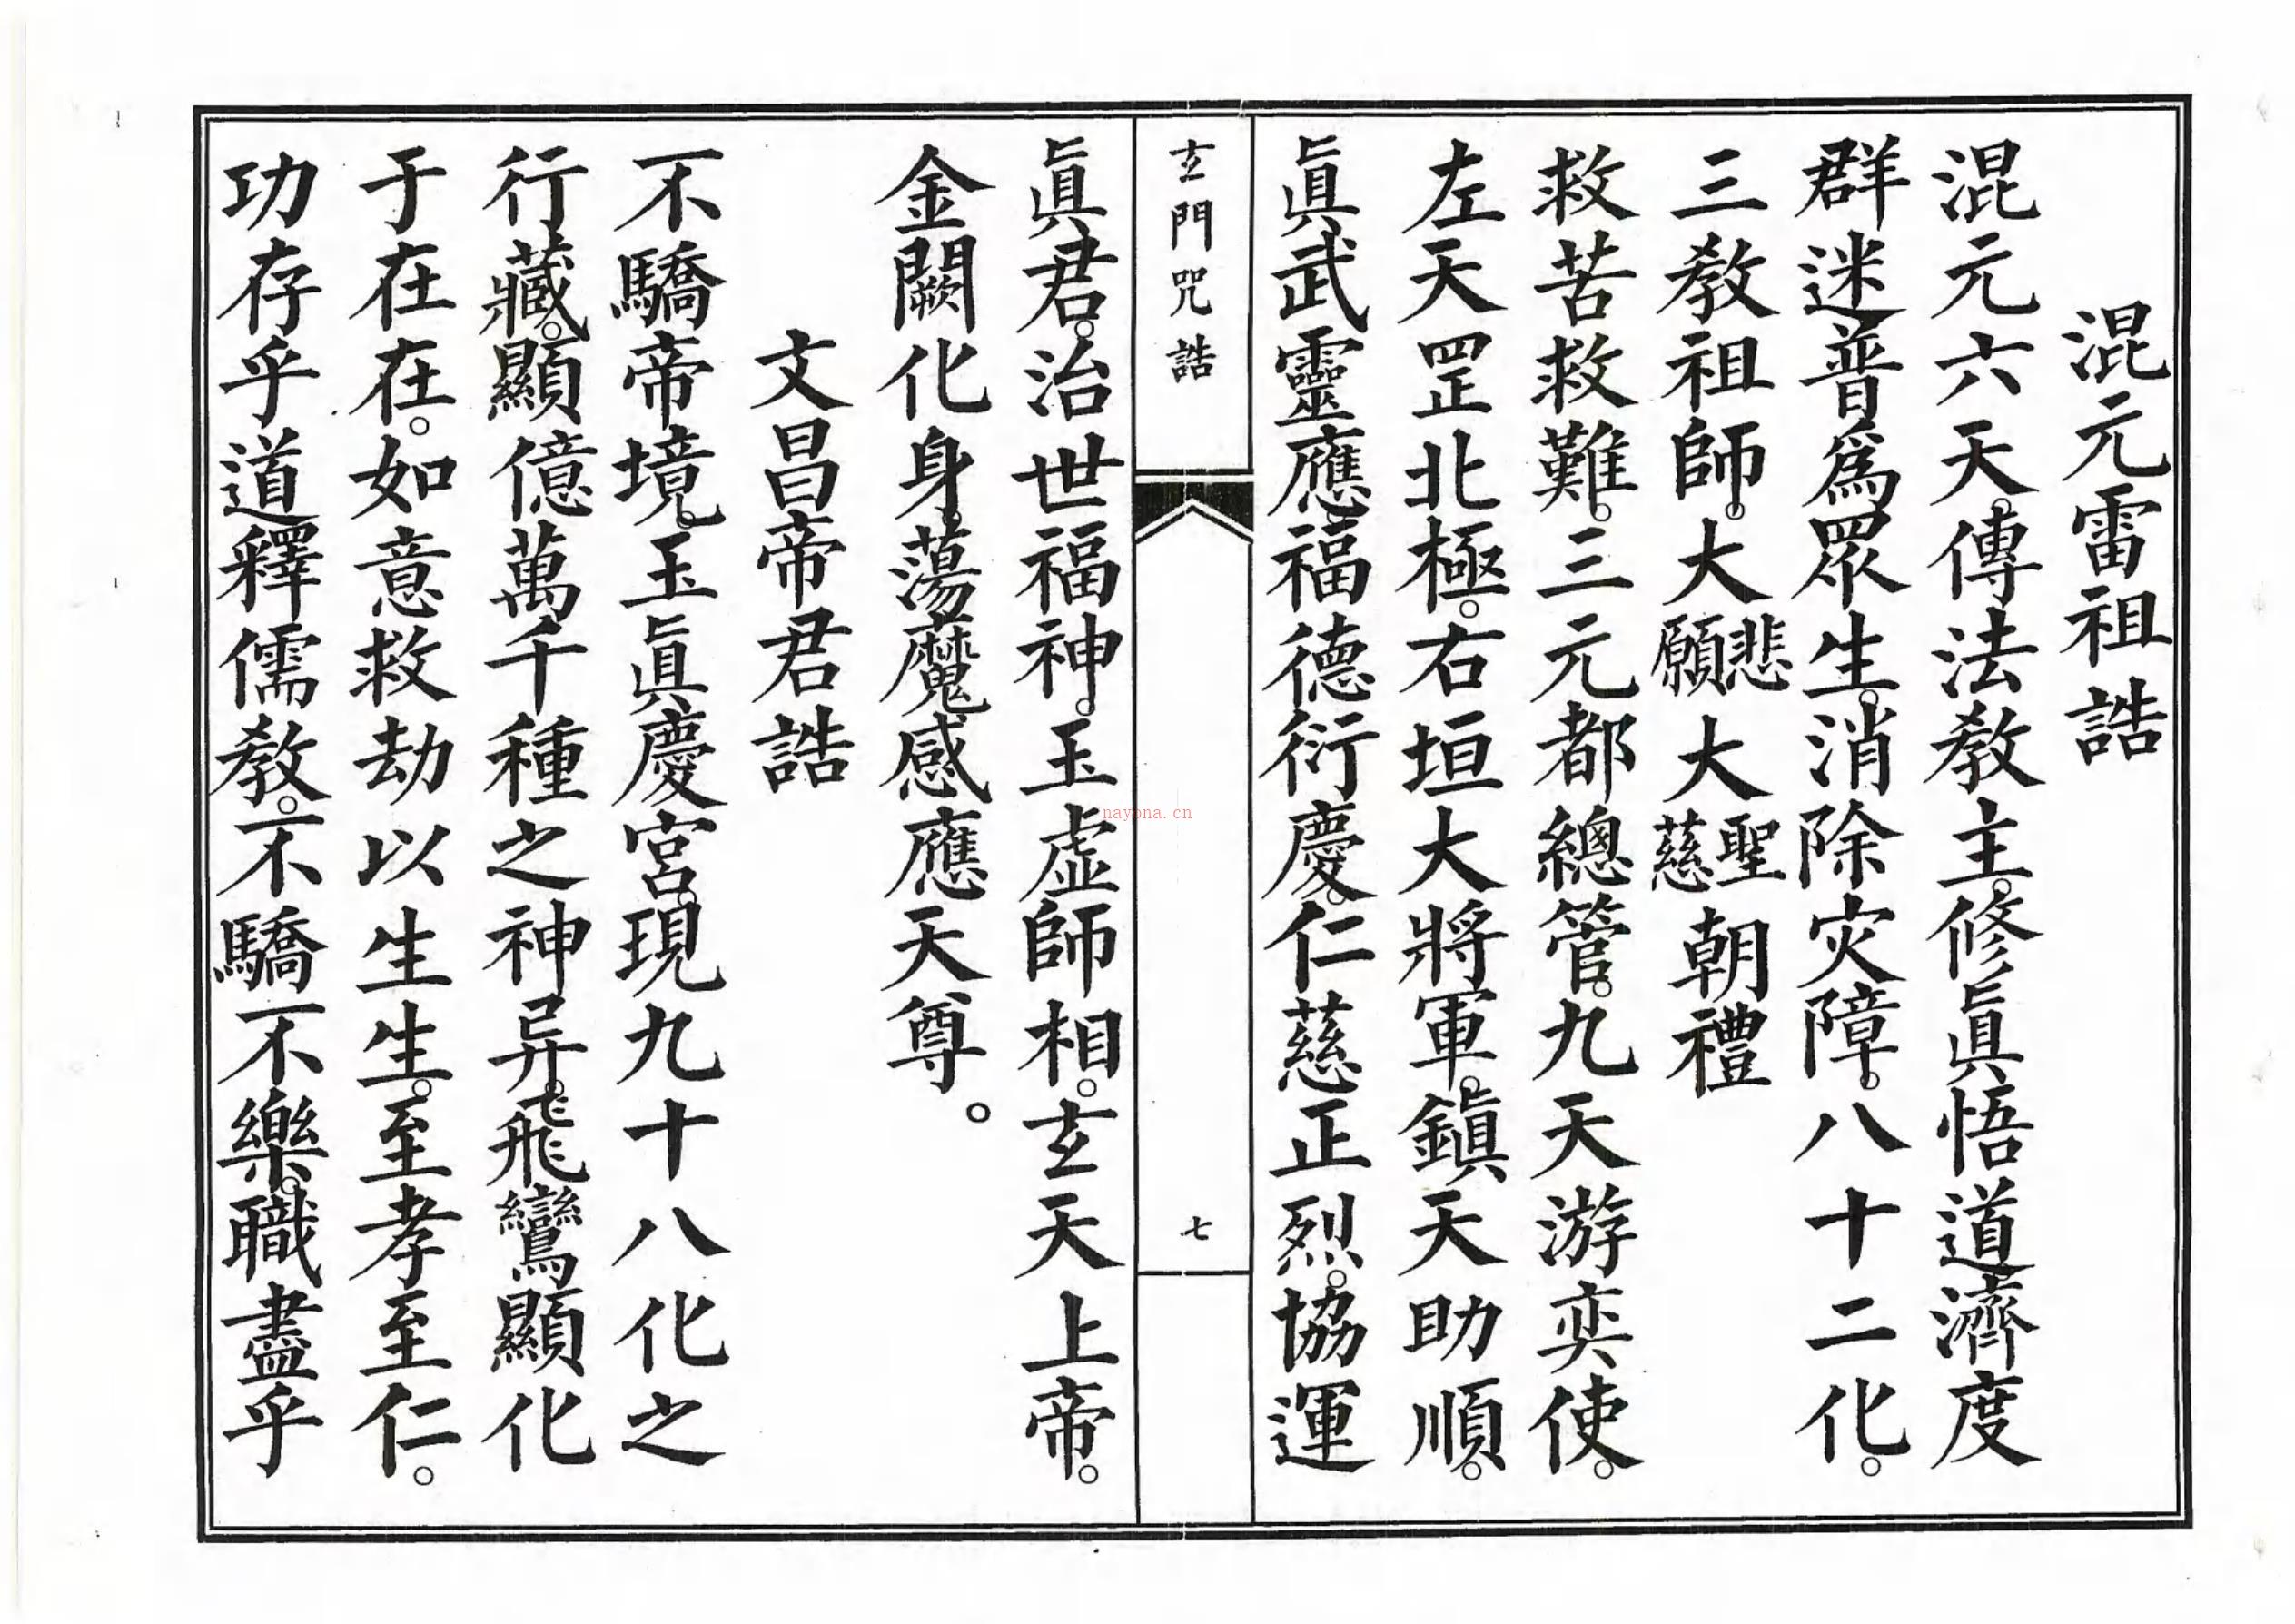 混元雷祖誥
混元六天。傳法敎主。修眞悟道濟度
群迷普爲眾生。消除灾障。八十二化。
三敎祖師。大悲願大聖慈朝禮
救苦救難。三元都總管。九天游奕使。
左天罡北極。右垣大將軍。鎭天助順。
眞武靈應。福德衍慶。仁慈正烈。協運
玄門咒誥
七
眞君。治世福神。玉虛師相。玄天上帝。
金闕化身。蕩魔感應天尊。
文昌帝君誥
不驕帝境。玉眞慶宮。現九十八化之
行藏。顯億萬千種之神异。飛鸞顯化
于在在。如意救劫以生生。至孝至仁。
功存乎道釋儒敎。不驕不樂。職盡乎
nayona.cn